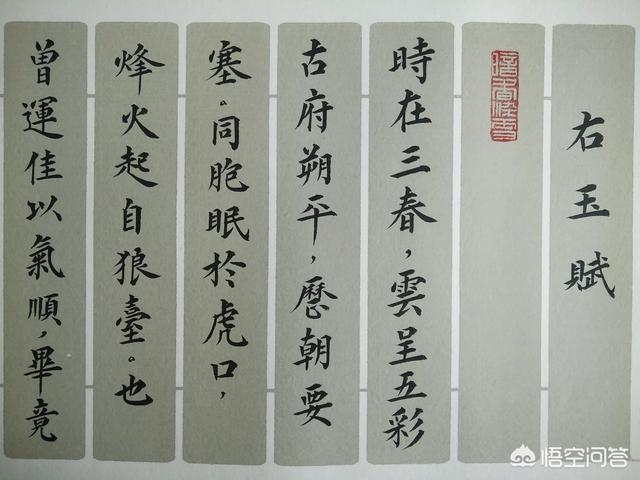 右玉賦
時在三春，雲呈五彩
古府朔平，歷朝要
塞。同胞眠於虎口，
烽火起自狼臺。也
曾運佳以氣順，畢竟
悟空问答